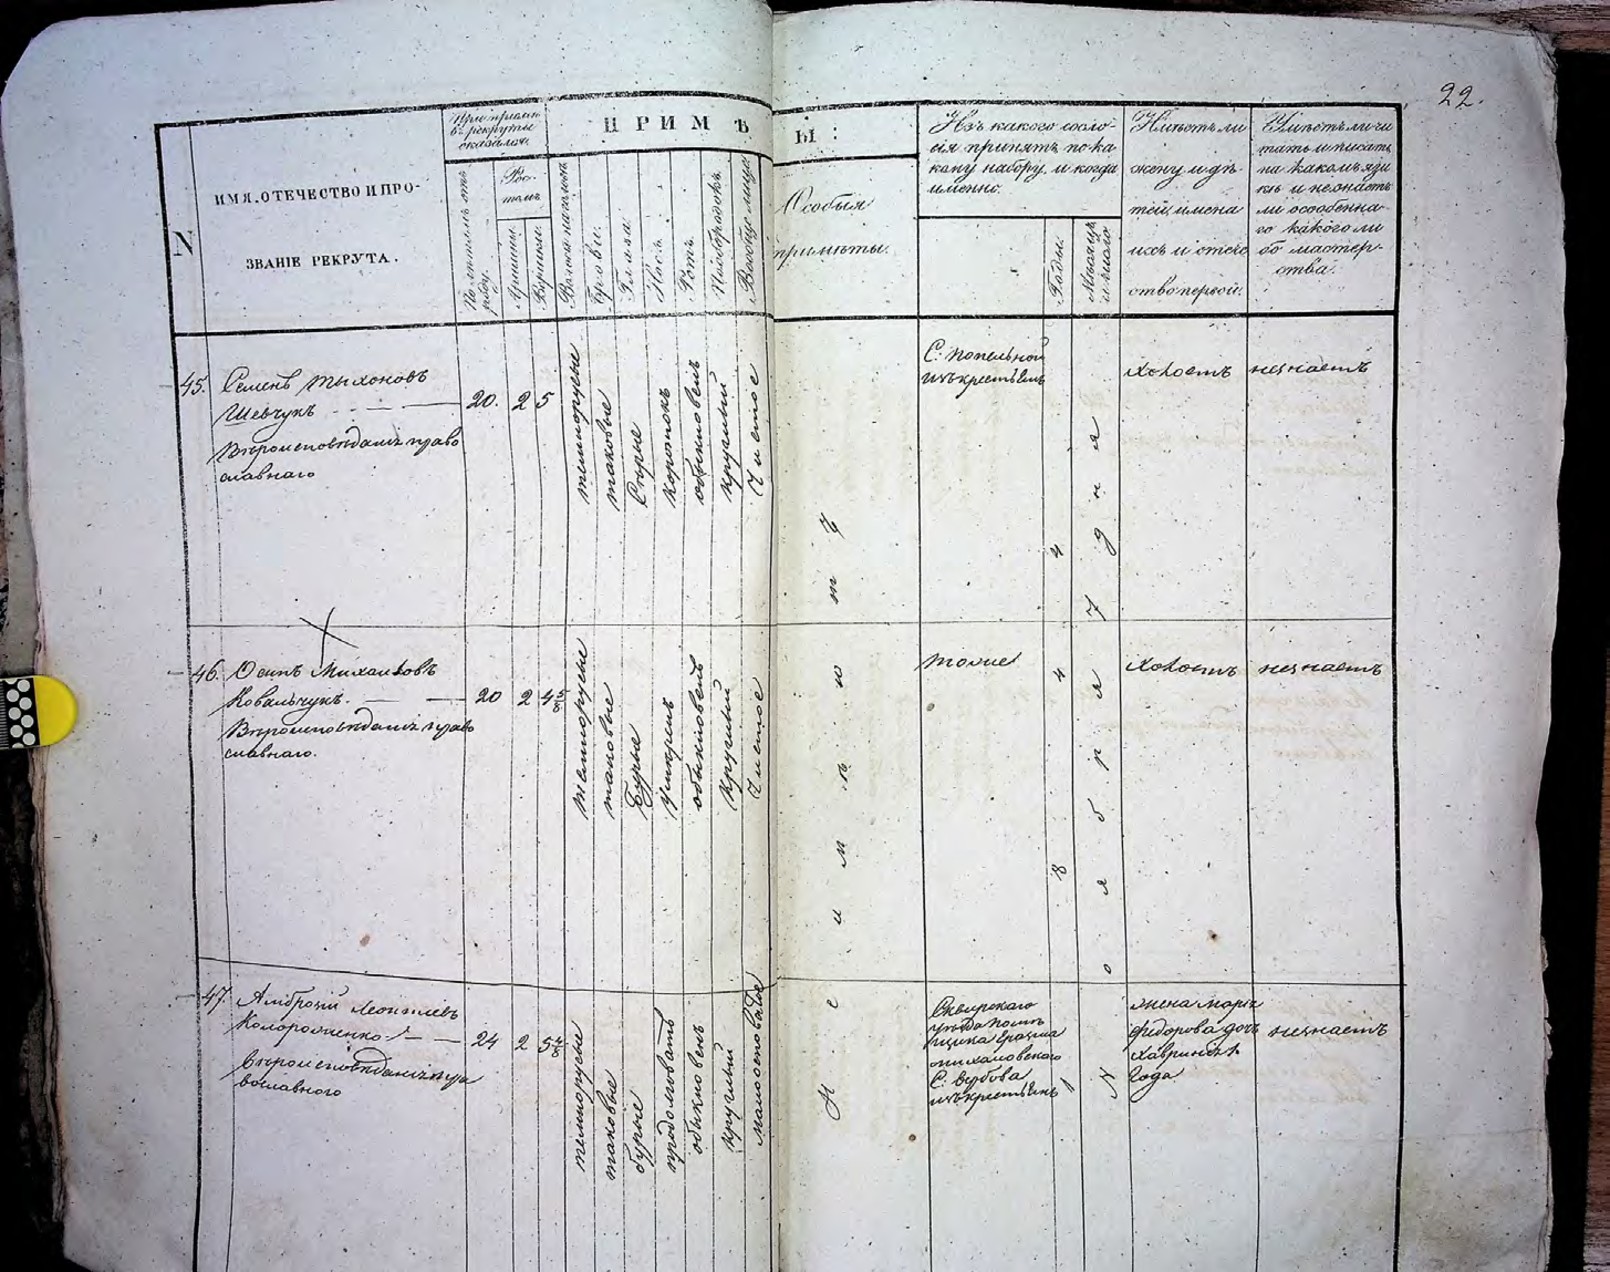 22.
N
ИМЯ, ОТЕЧЕСТВО И ПРО-
ЗВАНІЕ РЕКРУТА.
При приемѣ
въ рекруты
оказался.
По летамъ отъ
роду.
Рос-
томъ
Аршины.
Вершки.
ПРИМѢ
ТЫ:
Волоса на головѣ
Брови.
Глаза.
Носъ.
Ротъ.
Подбородокъ.
Вообще лице
Особыя
примѣты.
Изъ какого сосло-
вія принятъ по ка
кому набору, и когда
именно.
Годы.
Мѣсяцъ
и число
Имѣетъ ли
жену и дѣ-
тей, имена
ихъ и отече
ство первой.
Умѣетъ ли чи
тать и писать
на какомъ язы
кѣ и незнаетъ
ли особенна-
го какого ли
бо мастер-
ства.
45. Семенъ Тыхоновъ
Шевчукъ
Вѣроисповѣданія право
славнаго
20. 2 5
темнорусые
таковые
Серые
коротокъ
обыкновенъ
круглый
Чистое
С. Попельной
изъ крестьянъ
холостъ
незнаетъ
46. Осипъ Михайловъ
Ковальчукъ.
Вѣроисповѣданія право
славнаго.
20 2 4 5/8
темнорусые
таковые
Бурые
Умѣренъ
обыкновенъ
круглый
Чистое
тоже
холостъ
незнаетъ
47. Амброзій Леонтіевъ
Вѣроисповѣданія пра
вославного
24 2 5
темнорусые
таковые
бурые
продолговатъ
обыкновенъ
круглый
малосповатое
Сквирскаго
уѣзда помѣ
щика Еразма
Михаловскаго
С. Вербова
изъ крестьянъ
жена Марія
Федорова дочь
года
незнаетъ
Неимѣитъ
1 8 4 4
Ноября 7 дня